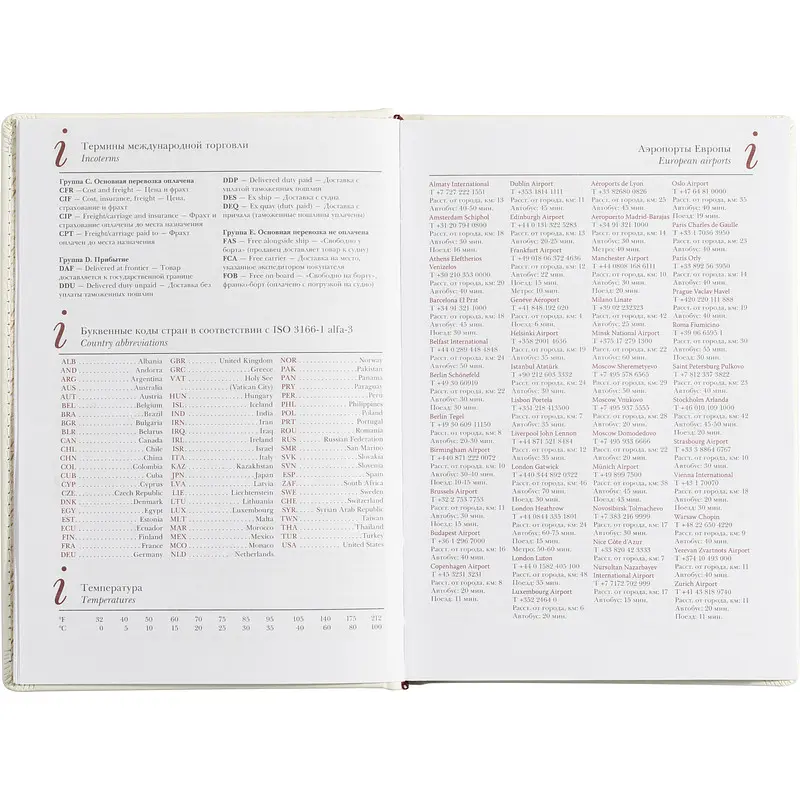 Термины международной торговли
Incoterms
Группа C. Основная перевозка оплачена
CFR — Cost and freight — Цена и фрахт
CIF — Cost, insurance, freight — Цена,
страхование и фрахт
CIP — Freight/carriage and insurance — Фрахт и
страхование оплачены до места назначения
CPT — Freight/carriage paid to — Фрахт
оплачен до места назначения
Группа D. Прибытие
DAF — Delivered at frontier — Товар
доставляется к государственной границе
DDU — Delivered duty unpaid — Доставка без
уплаты таможенных пошлин
DDP — Delivered duty paid — Доставка с
уплатой таможенных пошлин
DES — Ex ship — Доставка с судна
DEQ — Ex quay (duty paid) — Доставка с
причала (таможенные пошлины уплачены)
Группа E. Основная перевозка не оплачена
FAS — Free alongside ship — «Свободно у
борта» (продавец доставляет товар к судну)
FCA — Free carrier — Доставка на место,
указанное экспедитором покупателя
FOB — Free on board — «Свободно на борту»,
франко-борт (оплачено с погрузкой на судно)
Буквенные коды стран в соответствии с ISO 3166-1 alfa-3
Country abbreviations
ALB Albania
AND Andorra
ARG Argentina
AUS Australia
AUT Austria
BEL Belgium
BRA Brazil
BGR Bulgaria
BLR Belarus
CAN Canada
CHL Chile
CHN China
COL Colombia
CUB Cuba
CYP Cyprus
CZE Czech Republic
DNK Denmark
EGY Egypt
EST Estonia
ECU Ecuador
FIN Finland
FRA France
DEU Germany
GBR United Kingdom
GRC Greece
VAT Holy See
(Vatican City)
HUN Hungary
ISL Iceland
IND India
IRN Iran
IRQ Iraq
IRL Ireland
ISR Israel
ITA Italy
KAZ Kazakhstan
JPN Japan
LVA Latvia
LIE Liechtenstein
LTU Lithuania
LUX Luxembourg
MLT Malta
MAR Morocco
MEX Mexico
MCO Monaco
NLD Netherlands
NOR Norway
PAK Pakistan
PAN Panama
PRY Paraguay
PER Perú
PHL Philippines
POL Poland
PRT Portugal
ROU Romania
RUS Russian Federation
SMR San Marino
SVK Slovakia
SVN Slovenia
ESP Spain
ZAF South Africa
SWE Sweden
CHE Switzerland
SYR Syrian Arab Republic
TWN Taiwan
THA Thailand
TUR Turkey
USA United States
Температура
Temperatures
°F 32 40 50 60 70 75 85 95 105 140 175 212
°C 0 5 10 15 20 25 30 35 40 60 80 100
Аэропорты Европы
European airports
Almaty International
T +7 727 222 1351
Расст. от города, км: 13
Автобус: 40-50 мин.
Amsterdam Schiphol
T +31 20 794 0800
Расст. от города, км: 18
Автобус: 30 мин.
Поезд: 16 мин.
Athens Eleftherios
Venizelos
T +30 210 353 0000
Расст. от города, км: 20
Автобус: 40 мин.
Barcelona El Prat
T +34 91 321 1000
Расст. от города, км: 18
Автобус: 45 мин.
Поезд: 30 мин.
Belfast International
T +44 0 289 448 4848
Расст. от города, км: 24
Автобус: 50 мин.
Berlin Schönefeld
T +49 30 60910
Расст. от города, км: 22
Автобус: 30 мин.
Поезд: 30 мин.
Berlin Tegel
T +49 30 609 11150
Расст. от города, км: 8
Автобус: 20-30 мин.
Birmingham Airport
T +440 871 222 0072
Расст. от города, км: 10
Автобус: 30-40 мин.
Поезд: 10-15 мин.
Brussels Airport
T +32 2 753 7753
Расст. от города, км: 14
Автобус: 30 мин.
Поезд: 15 мин.
Budapest Airport
T +36 1 296 7000
Расст. от города, км: 16
Автобус: 40 мин.
Copenhagen Airport
T +45 3231 3231
Расст. от города, км: 8
Автобус: 20 мин.
Поезд: 11 мин.
Dublin Airport
T +353 1814 1111
Расст. от города, км: 11
Автобус: 45 мин.
Edinburgh Airport
T +44 0 131 322 3283
Расст. от города, км: 13
Автобус: 20-25 мин.
Frankfurt Airport
T +49 018 06 372 4636
Расст. от города, км: 12
Поезд: 15 мин.
Метро: 10 мин.
Genève Aéroport
T +41 848 192 020
Расст. от города, км: 4
Поезд: 6 мин.
Helsinki Airport
T +358 2001 4636
Расст. от города, км: 19
Автобус: 35 мин.
Istanbul Atatürk
T +90 212 603 3332
Расст. от города, км: 24
Автобус: 40 мин.
Lisbon Portela
T +351 218 413500
Расст. от города, км: 7
Автобус: 35 мин.
Liverpool John Lennon
T +44 871 521 8484
Расст. от города, км: 12
Автобус: 35 мин.
London Gatwick
T +440 344 892 0322
Расст. от города, км: 46
Автобус: 70 мин.
Поезд: 30 мин.
London Heathrow
T +44 0844 335 1801
Расст. от города, км: 24
Автобус: 60-75 мин.
Поезд: 15 мин.
Метро: 50-60 мин.
London Luton
T +44 0 1582 405 100
Расст. от города, км: 48
Поезд: 35 мин.
Luxembourg Airport
T +352 2464 0
Расст. от города, км: 6
Автобус: 20 мин.
Aéroports de Lyon
T +33 82680 0826
Расст. от города, км: 25
Автобус: 45 мин.
Aeropuerto Madrid-Barajas
T +34 91 321 1000
Расст. от города, км: 14
Автобус: 30 мин.
Manchester Airport
T +44 0808 168 6111
Расст. от города, км: 10
Автобус: 30 мин.
Поезд: 20 мин.
Milano Linate
T +39 02 232323
Расст. от города, км: 42
Автобус: 25 мин.
Minsk National Airport
T +375 17 279 1300
Расст. от города, км: 22
Автобус: 60 мин.
Moscow Sheremetyevo
T +7 495 578 6565
Расст. от города, км: 29
Moscow Vnukovo
T +7 495 937 5555
Расст. от города, км: 28
Moscow Domodedovo
T +7 495 933 6666
Расст. от города, км: 22
Автобус: 20 мин.
Münich Airport
T +49 899 7500
Расст. от города, км: 38
Автобус: 45 мин.
Поезд: 43 мин.
Novosibirsk Tolmachevo
T +7 383 216 9999
Расст. от города, км: 17
Автобус: 30 мин.
Nice Côte d'Azur
T +33 820 42 3333
Расст. от города, км: 7
Nursultan Nazarbayev
International Airport
T +7 7172 702 999
Расст. от города, км: 17
Автобус: 15 мин.
Oslo Airport
T +47 64 81 0000
Расст. от города, км: 35
Автобус: 40 мин.
Поезд: 19 мин.
Paris Charles de Gaulle
T +33 1 7036 3950
Расст. от города, км: 23
Автобус: 40 мин.
Paris Orly
T +33 892 56 3950
Расст. от города, км: 14
Автобус: 40 мин.
Prague Vaclav Havel
T +420 220 111 888
Расст. от города, км: 19
Автобус: 40 мин.
Roma Fiumicino
T +39 06 6595 1
Расст. от города, км: 30
Автобус: 55 мин.
Поезд: 30 мин.
Saint Petersburg Pulkovo
T +7 812 337 3822
Расст. от города, км: 23
Автобус: 30 мин.
Stockholm Arlanda
T +46 010 109 1000
Расст. от города, км: 42
Автобус: 45-50 мин.
Поезд: 20 мин.
Strasbourg Airport
T +33 3 8864 6767
Расст. от города, км: 10
Автобус: 30 мин.
Vienna International
T +43 1 70070
Расст. от города, км: 18
Автобус: 20 мин.
Поезд: 30 мин.
Warsaw Chopin
T +48 22 650 4220
Расст. от города, км: 9
Автобус: 30 мин.
Yerevan Zvartnots Airport
T +374 10 493 000
Расст. от города, км: 11
Автобус: 40 мин.
Zurich Airport
T +41 43 818 9740
Расст. от города, км: 11
Автобус: 20 мин.
Поезд: 11 мин.